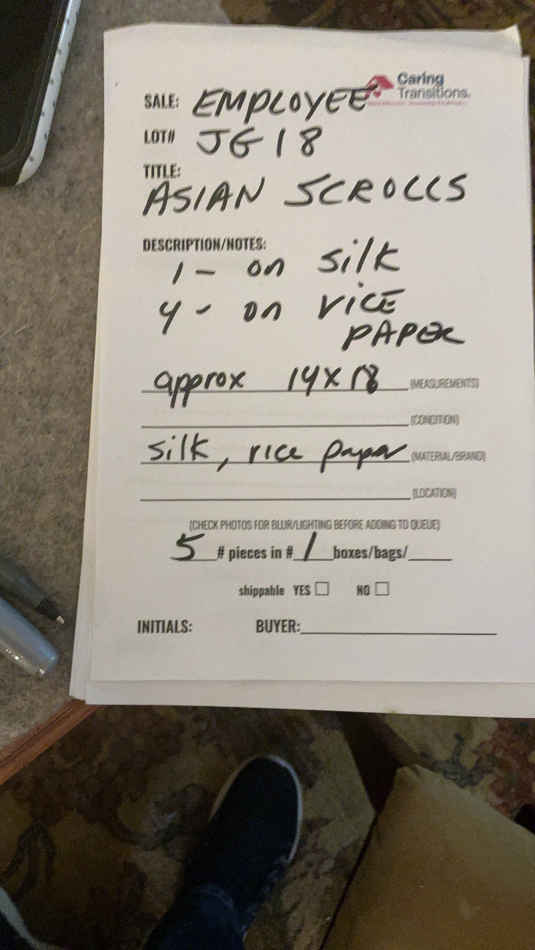 Caring
Transitions.
SALE: EMPLOYEE
LOT# JG18
TITLE:
ASIAN SCROLLS
DESCRIPTION/NOTES:
1 - on silk
4 - on RICE
PAPER
approx 14 x 18 (MEASUREMENTS)
(CONDITION)
silk, rice paper (MATERIAL/BRAND)
(LOCATION)
(CHECK PHOTOS FOR BLUR/LIGHTING BEFORE ADDING TO QUEUE)
5 # pieces in # 1 boxes/bags/
shippable YES NO
INITIALS: BUYER: